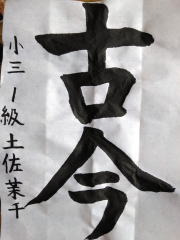 古今
小三 1級 土佐葉千